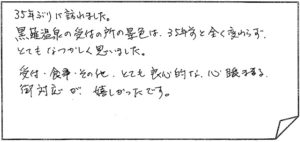 35年ぶりに訪れました。
黒羅温泉の受付の所の景色は、35年前と全く変わらず、
とてもなつかしく思いました。
受付・食事・その他、とても良心的な、心暖まる
御対応が嬉しかったです。